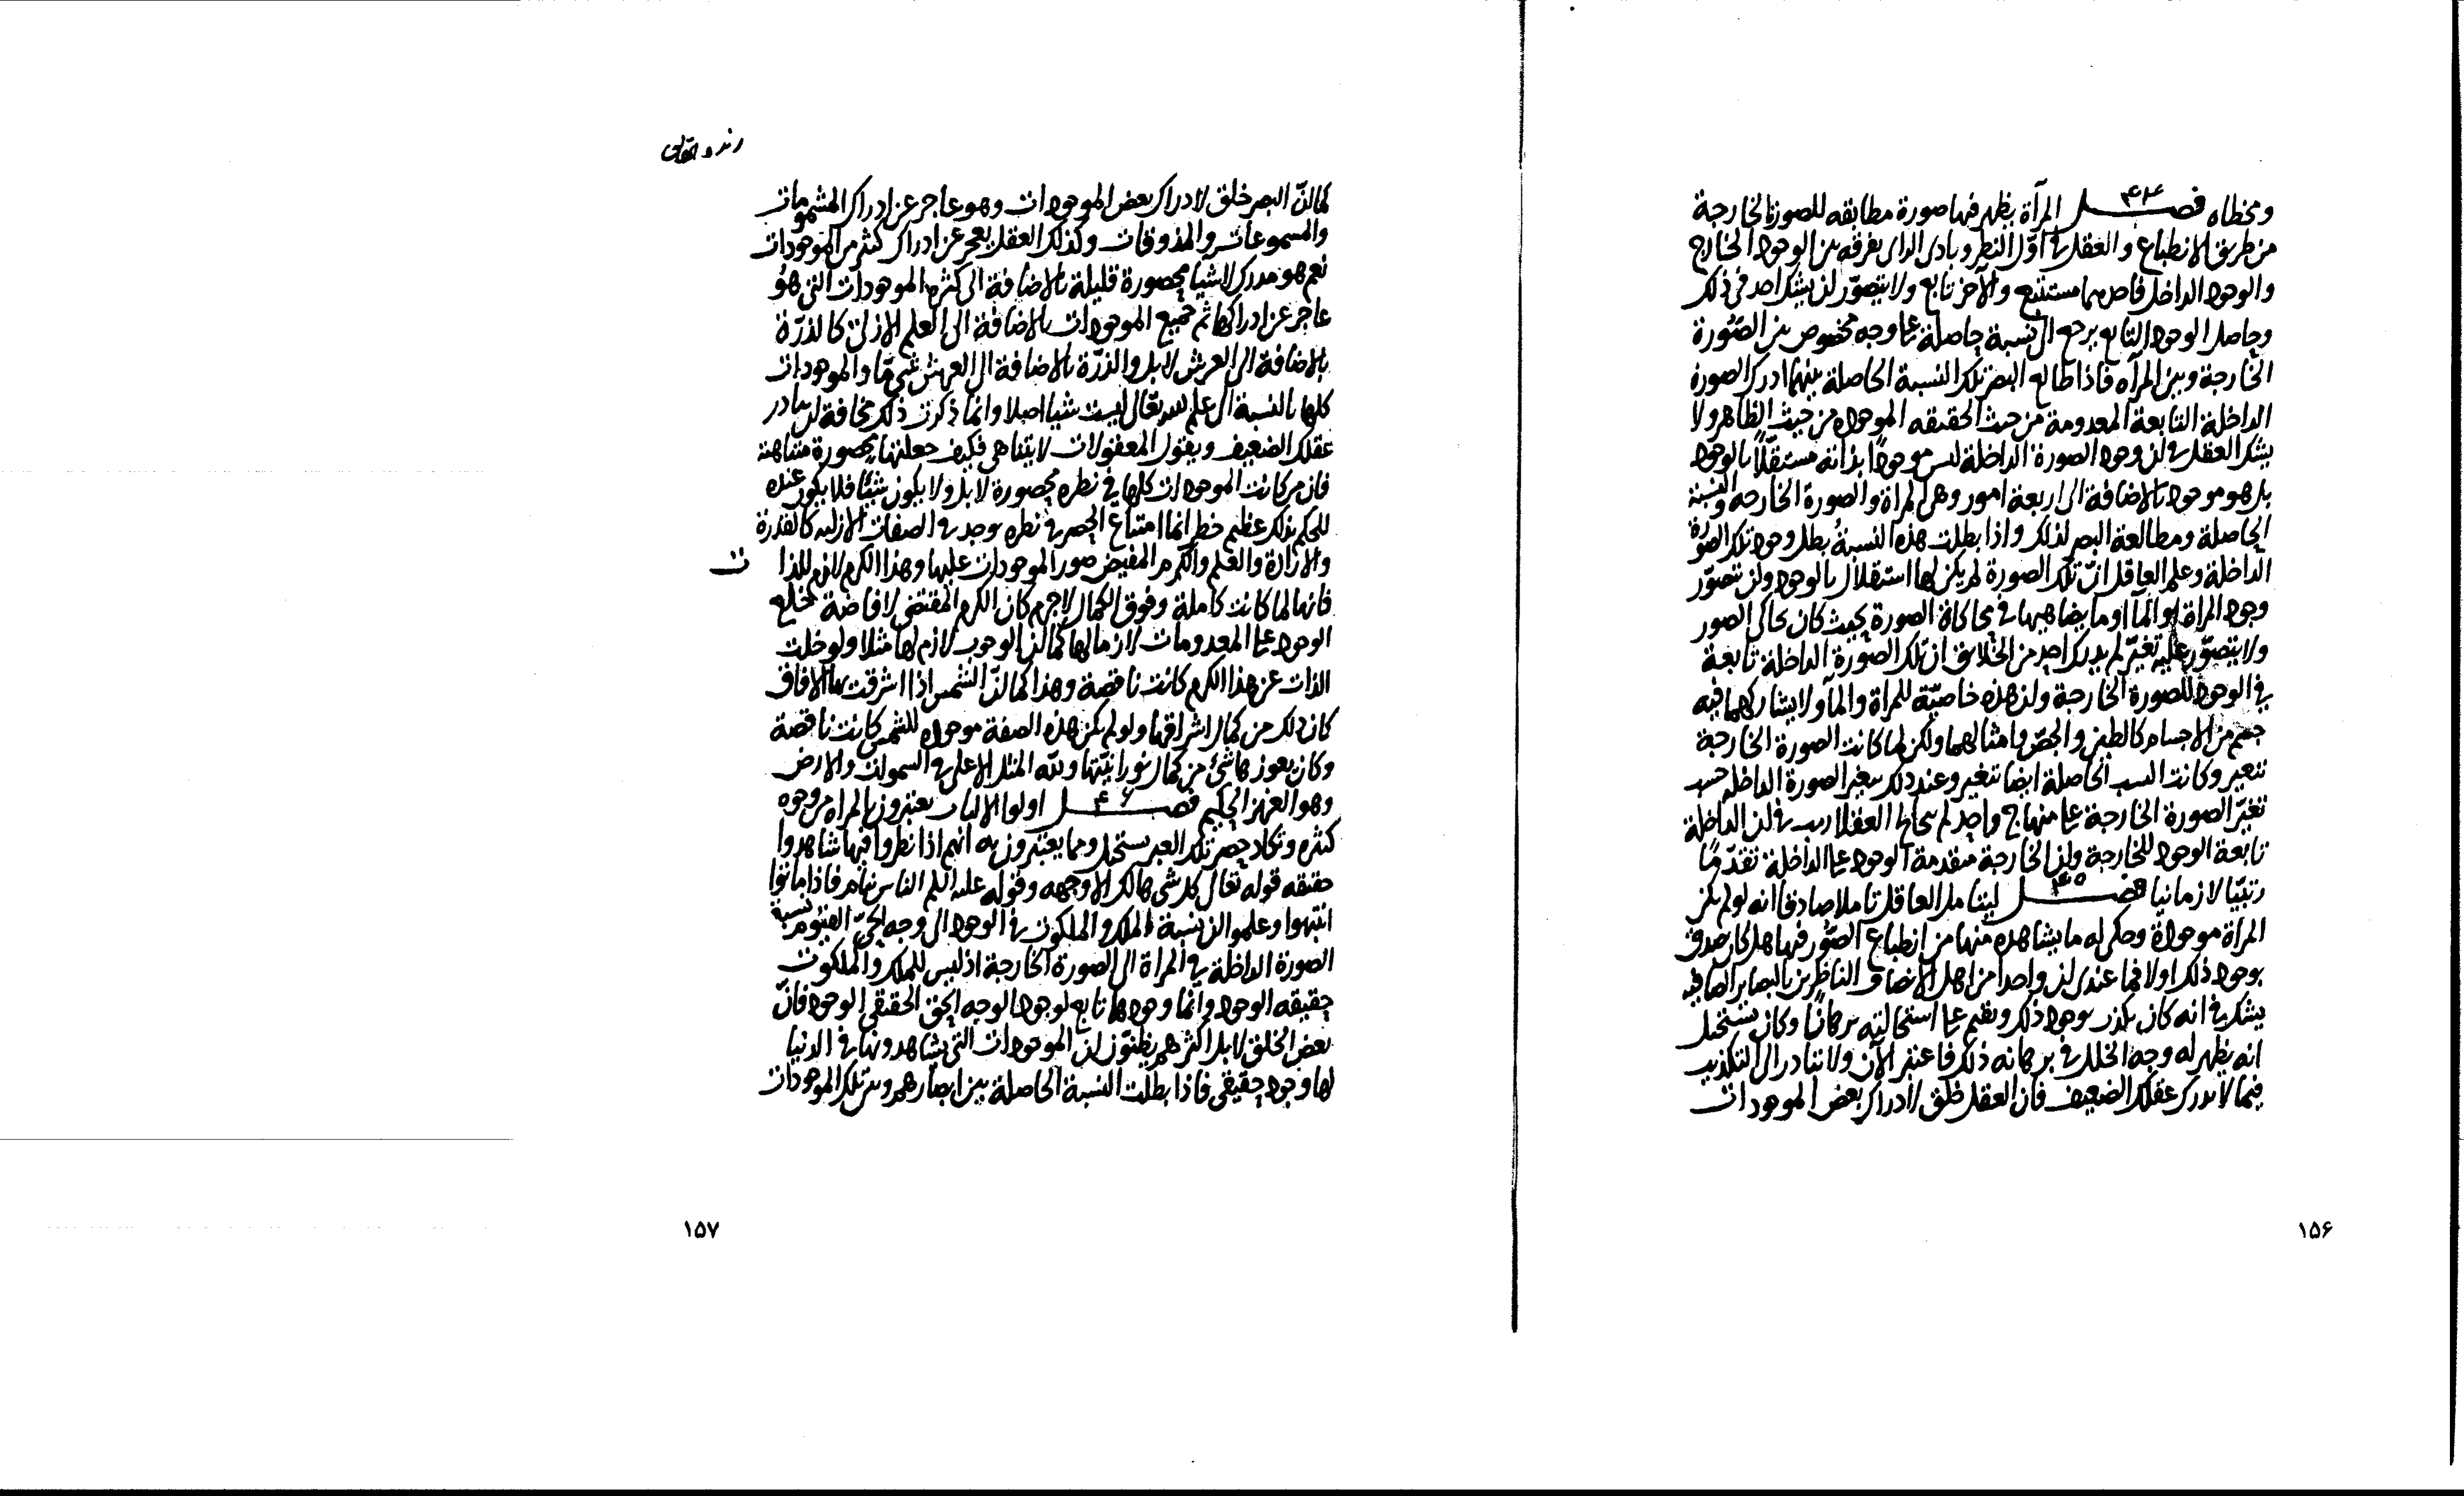 ومخطاه فصل ٤٤ المرآة يظهر فيها صورة مطابقه للصورة الخارجة
من طريق الانطباع والعقل في اول النظر وبادى الراى يفرقه بين الوجود الخارج
والوجود الداخل فاحدهما مستتبع والآخر تابع ولا يتصوّر ان يشك احد في ذلك
وحاصل الوجود التابع يرجع الى نسبة حاصلة على وجه مخصوص بين الصّورة
الخارجة وبين المرآه فاذا طالع البصر تلك النسبة الحاصلة بينهما ادرك الصورة
الداخلة التابعة المعدومة من حيث الحقيقه الموجوده من حيث الظاهر ولا
يشك العقل في ان وجود الصورة الداخلة ليس موجودًا بذاته مستقلّا بالوجود
بل هو موجود بالاضافة الى اربعة امور وهى المراة والصورة الخارجه والنسبة
الحاصلة ومطالعة البصر لذلك واذا بطلت هذه النسبةُ بطل وجود تلك الصورة
الداخلة وعلم العاقل انّ تلك الصورة لم يكن لها استقلال بالوجود ولن تتصوّر
وجود المراة او المآ او ما يضاهيها في محاكاة الصورة بحيث كان يحاكى الصور
ولا يتصوّر عليه تغيّر لم يدرك احد من الخلائق ان تلك الصورة الداخلة تابعة
في الوجود للصورة الخارجة وان هذه خاصيّة للمراة والمآ ولا يشاركهما فيه
جسم من الاجسام كالطين والجصّ وامثالهما ولكن لما كانت الصورة الخارجة
تتغير وكانت النسبة الحاصلة ايضا تتغير وعند ذلك يتغير الصورة الداخلة حسب
تغيّر الصورة الخارجة على منهاج واحد لم العقلا ريب في ان الداخلة
تابعة الوجود للخارجة وان الخارجة متقدمة الوجود على الداخلة تقدّمًا
رتبيّا لا زمانيا فصل ٤٥ ليتامل العاقل تاملا صادقا انه لو لم يكن
المرآة موجودة وحكى له ما يشاهده منها من انطباع الصّور فيها هل كان يصدق
بوجود ذلك اولا فما عندى ان واحدا من اهل الانصاف الناظرين بالبصاير الصافيه
يشك في انه كان يكذب بوجود ذلك ويقيم على استحالته برهانًا وكان يستحيل
انه يظهر له وجه الخلل في برهانه ذلك فاعتبر الآن ولا تبادر الى التكذيب
فيما لا يدرك عقلك الضعيف فان العقل خلق لادراك بعض الموجودات
١٥۶
كما انّ البصر خلق لادراك بعض الموجودات وهو عاجز عن ادراك المشمومات
والمسموعات والمذوقات وكذلك العقل يعجز عن ادراك كثير من الموجودات
نعم هو مدرك لاشيا محصورة قليلة بالاضافة الى كثرة الموجودات التى هُو
عاجز عن ادراكها ثم جميع الموجودات بالاضافة الى العلم الازلى كالذرّة
بالاضافة الى العرش لا بل والذرّة بالاضافة الى العرش شىء مّا والموجودات
كلها بالنسبة الى علم الله تعالى ليست شيا اصلا وانما ذكرت ذلك مخافة ان يبادر
عقلك الضعيف ويقول المعقولات لا يتناهى فكيف جعلتها محصورة متناهية
فان من كانت الموجودات كلها في نظره محصورة لا بل ولا يكون شيئا فلا يكون عنده
للحكم بذلك عظيم خطر انما امتناع الحصر في نظره يوجد في الصفات الازليه كالقدرة
والارادة والعلم والكرم المفيض صور الموجودات عليها وهذا الكرم لازم للذات
فانها لما كانت كاملة وفوق الكمال لاجرم كان الكرم المقتضى لافاضة خلع
الوجود على المعدومات لازما لها كما ان الوجوب لازم لها مثلا ولو خلت
الذات عن هذا الكرم كانت ناقصة وهذا كما انّ الشمس اذا اشرقت بها الآفاق
كان ذلك من كمال اشراقها ولو لم يكن هذه الصفة موجوده للشمس كانت ناقصة
وكان يعوزها شئ من كمال نورانيّتها ولله المثل الاعلى في السموات والارض
وهو العزيز الحكيم فصل ٤۶ اولوا الالباب يعتبرون بالمراه من وجوه
كثيره ويكاد حصر تلك العبر يستحيل ومما يعتبرون به انهم اذا نظروا فيها شاهدوا
حقيقه قوله تعالى كل شى هالك الا وجهه وقوله عليه السلم الناس نيام فاذا ماتوا
انتبهوا وعلموا ان نسبة الملك والملكوت في الوجود الى وجه الحىّ القيّوم نسبة
الصورة الداخلة في المراة الى الصورة الخارجة اذ ليس للملك والملكوت
حقيقه الوجود وانما وجودها تابع لوجود الوجه الحق الحقيقى الوجود فانّ
بعض الخلق لا بل اكثرهم يظنّون ان الموجودات التى يشاهدونها في الدنيا
لها وجود حقيقى فاذا بطلت النسبة الحاصلة بين ابصارهم وبين تلك الموجودات
١٥٧